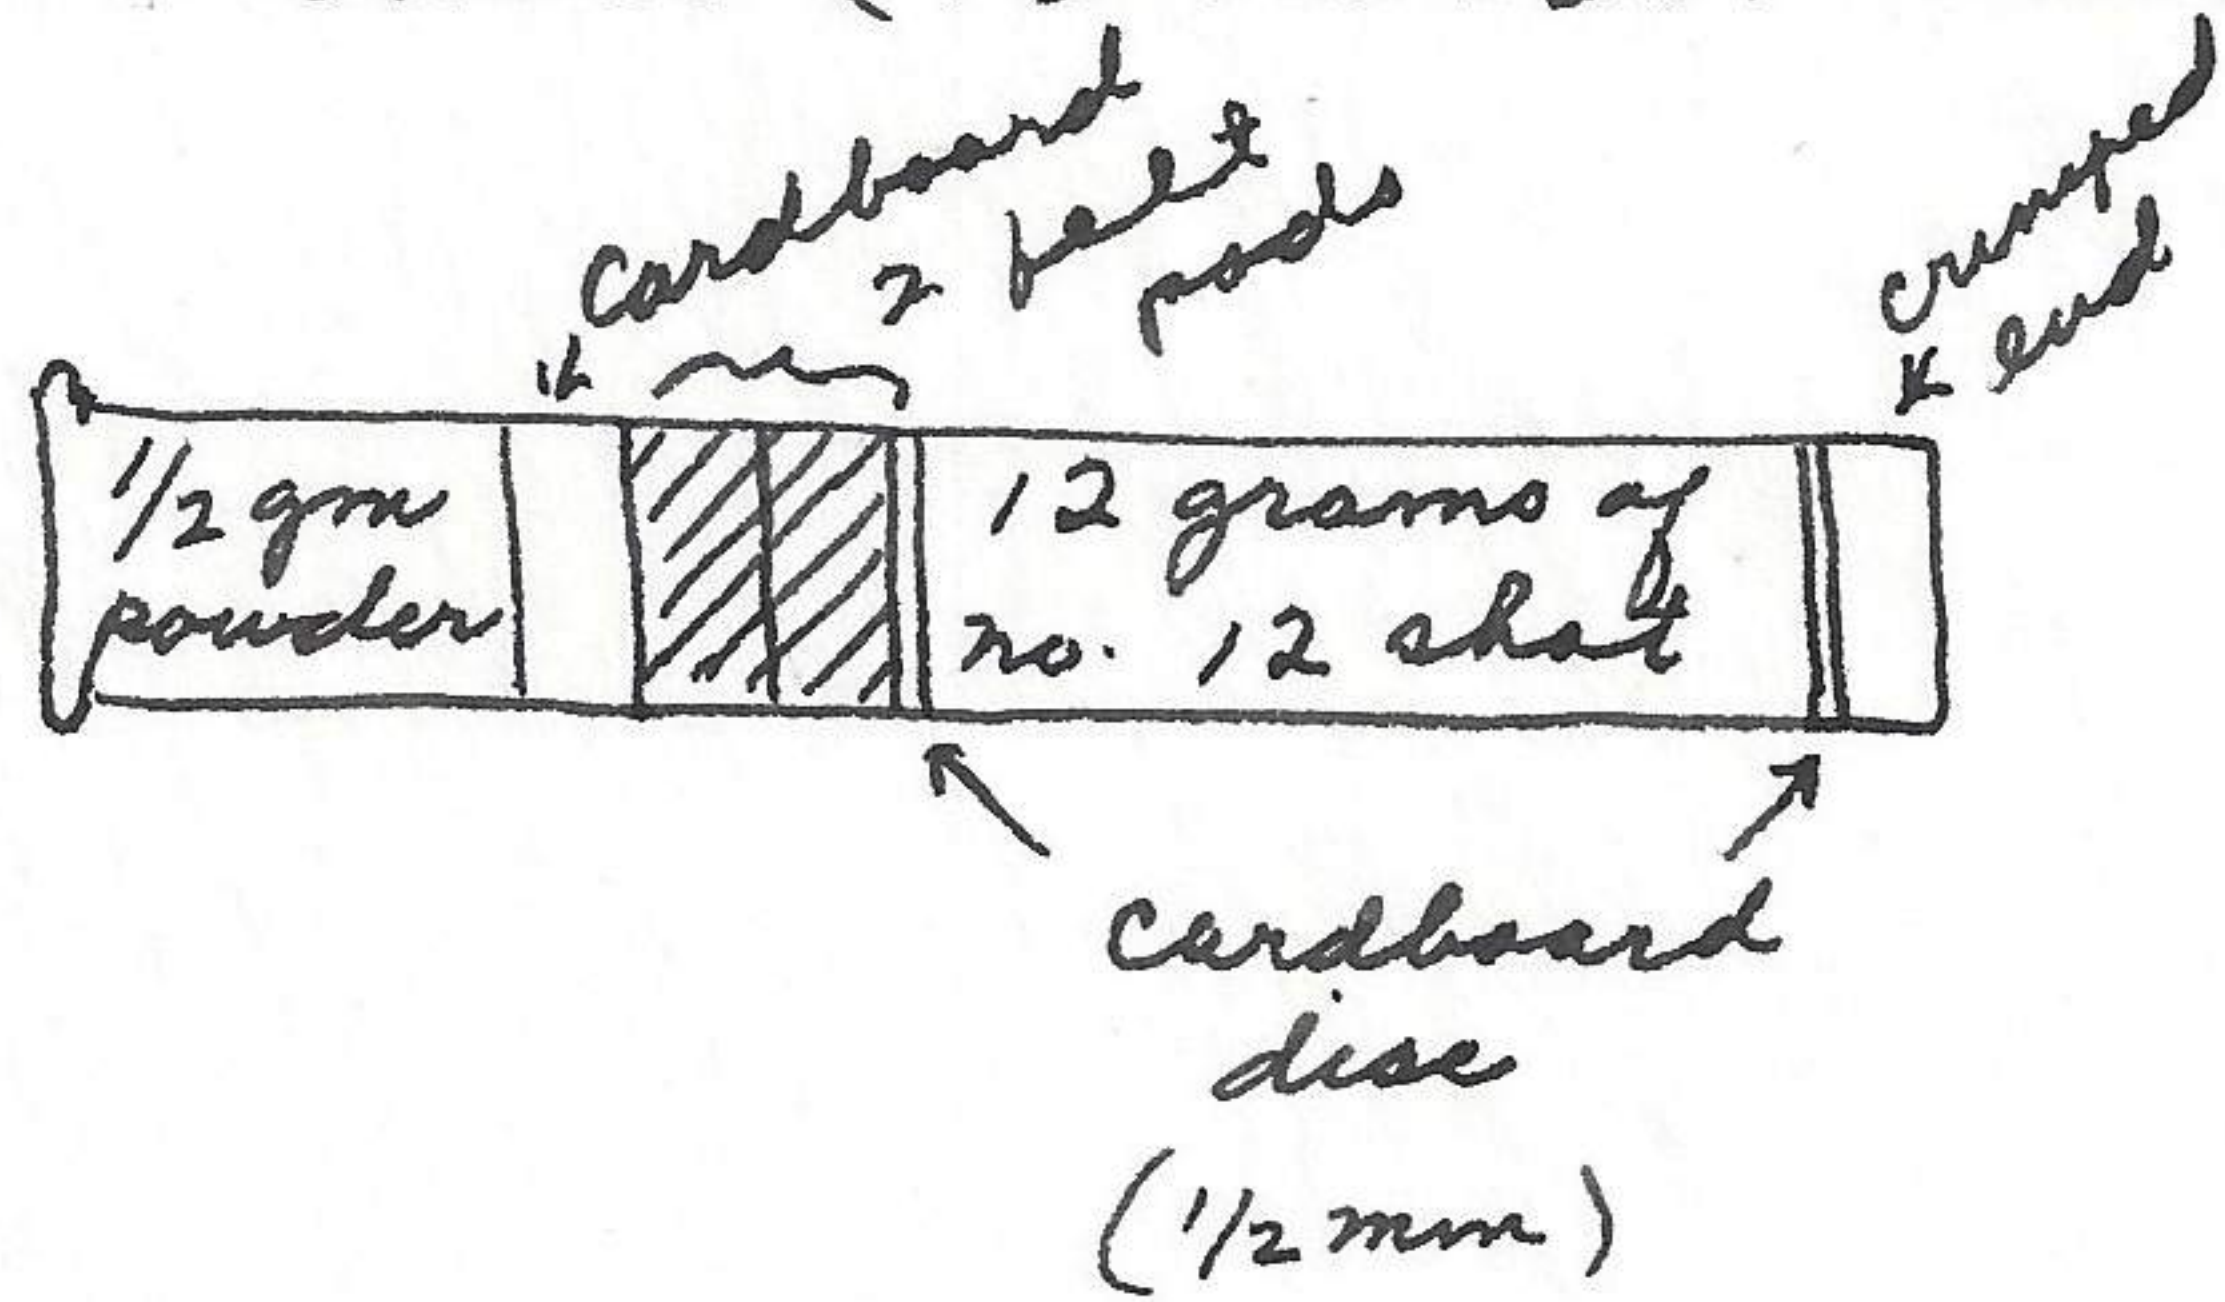 cardboard
2 felt
pads
crimped
end
1/2 gm
powder
12 grams of
no. 12 shot
cardboard
disc
(1/2 mm)